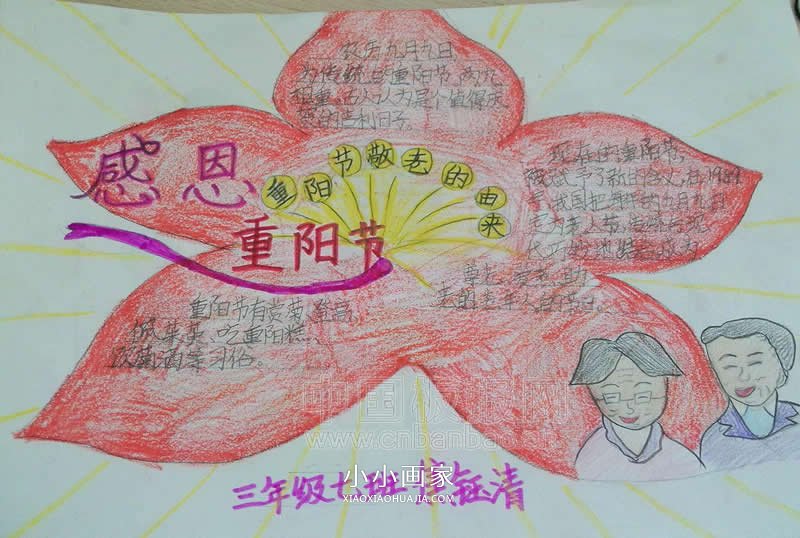 农历九月九日
为传统的重阳节,两九
相重,古人认为是个值得庆
贺的吉利日子。
感恩
重阳节
重阳节敬老的由来
现在的重阳节,
被赋予了新的含义,在1989
年,我国把每年的九月九日
定为老人节,传统与现
代巧妙地结合,成为
尊老、爱老、助
老的老年人的节日。
重阳节有赏菊、登高、
佩茱萸、吃重阳糕、
饮菊酒等习俗。
中国板报网
www.cnbanbao.cn
三年级七班
钰清
小小画家
XIAOXIAOHUAJIA.COM